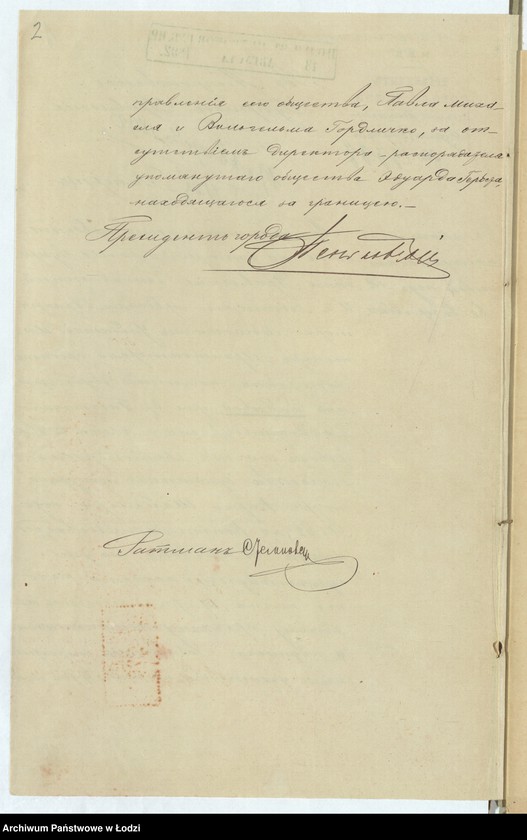 2
правленія сего общества, Павла Миха-
ела и Вильгельма Гордличко, за от-
сутствіемъ директора-распорядателя
упомянутаго общества Эдуарда Гербста,
находящагося за границею.—
Президентъ города
Ратманъ
Archiwum Państwowe w Łodzi